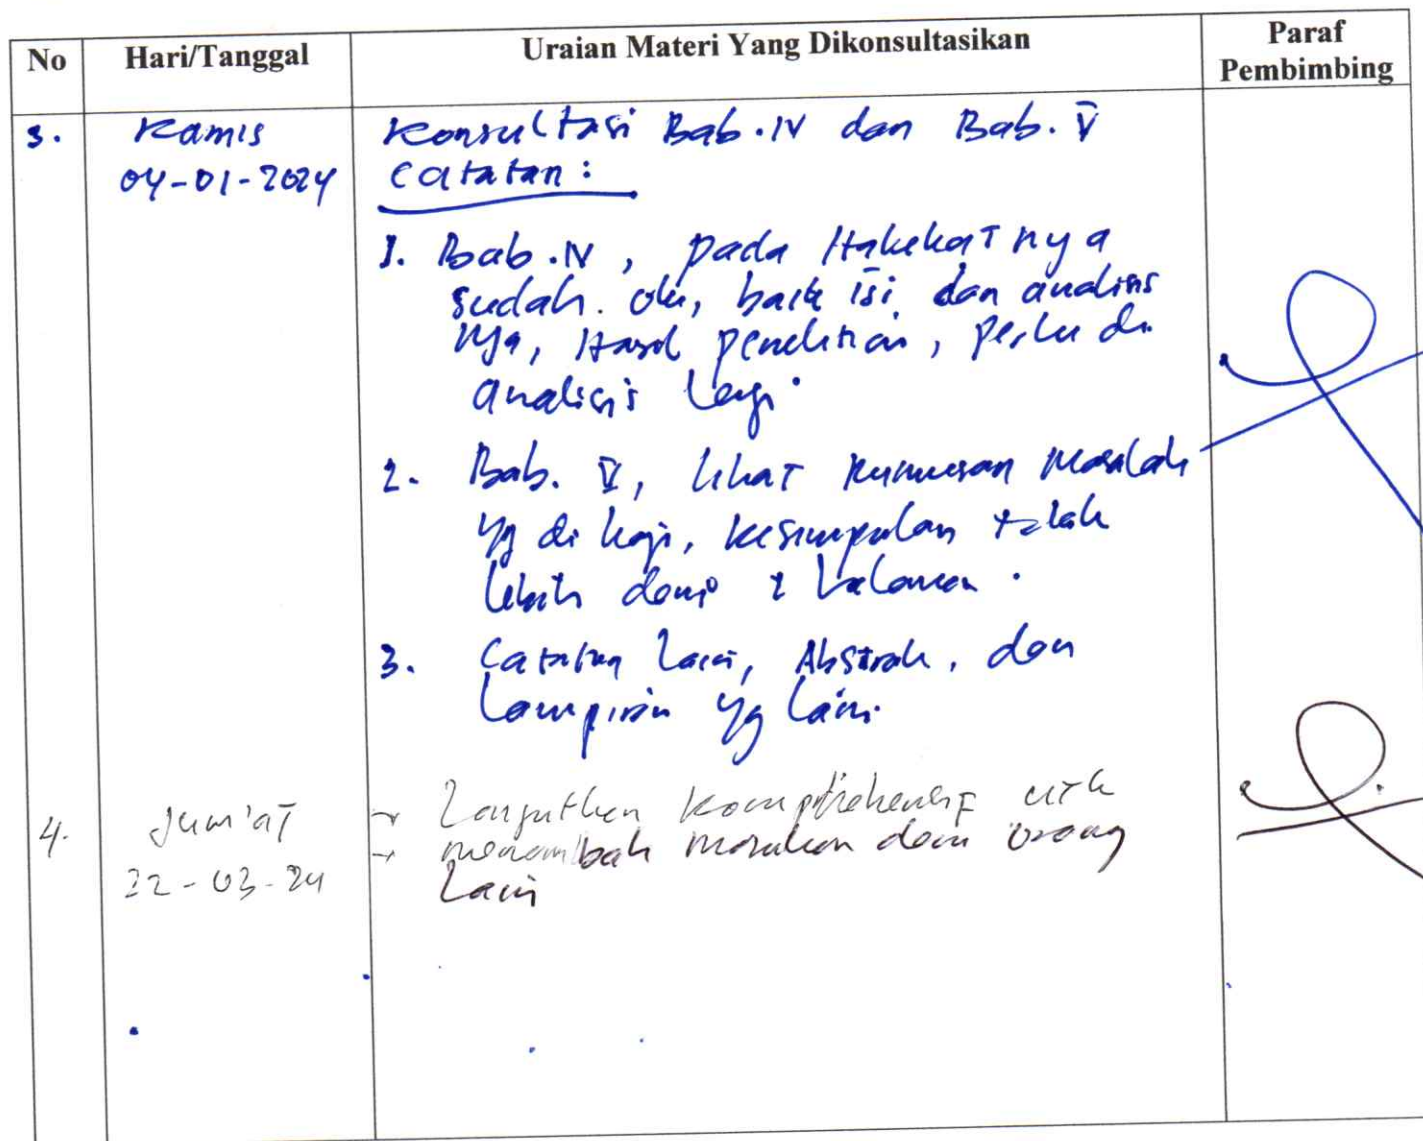 No Hari/Tanggal Uraian Materi Yang Dikonsultasikan Paraf Pembimbing
3. Kamis Konsultasi Bab.IV dan Bab. V
04-01-2024 Catatan:
1. Bab.IV, pada Hakekatnya
sudah. ok, baik isi dan analisis
nya, Hasil penelitian, perlu di
analisis lagi.
2. Bab. V, lihat Rumusan Masalah
yg di kaji, kesimpulan
lebih dari 2 halaman.
3. Catatan lain, Abstrak, dan
Lampiran yg lain.
4. Jum'at → Lanjutkan Komprehensif utk
→ menambah masukan dari orang
22-03-24 Lain